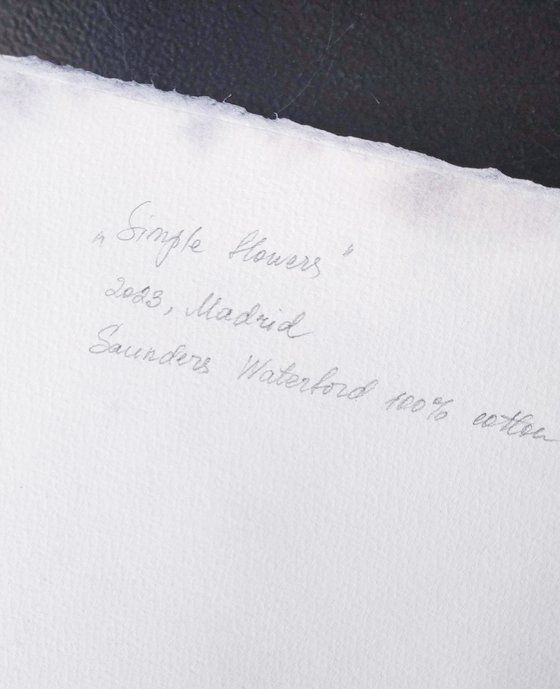 „Simple flowers"
2023, Madrid
Saunders Waterford 100% cotton